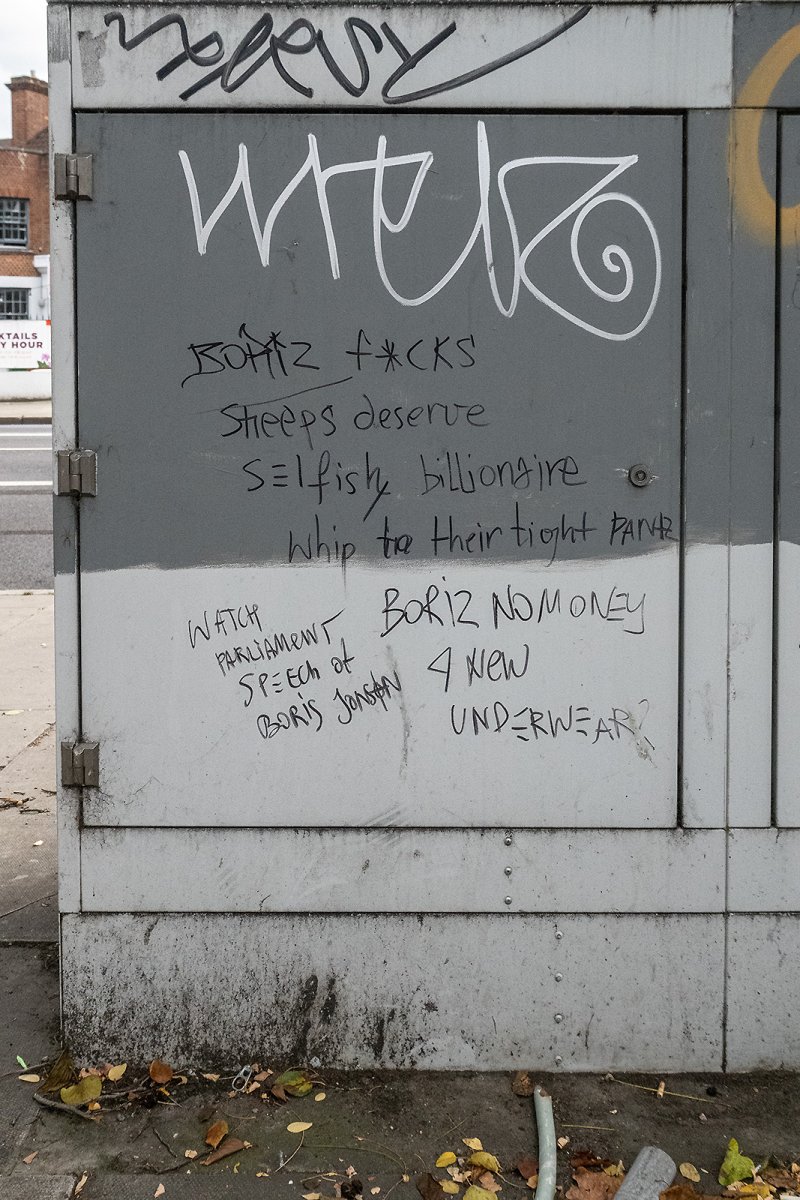 KTAILS
Y HOUR
BORIZ f*CKS
Sheeps deserve
Selfish billionaire
Whip to their tight PANTZ
WATCH
PARLIAMENT
SPEECh of
BORIS JONSAN
BORiZ NO MONEY
4 NEW
UNDERWEAR?